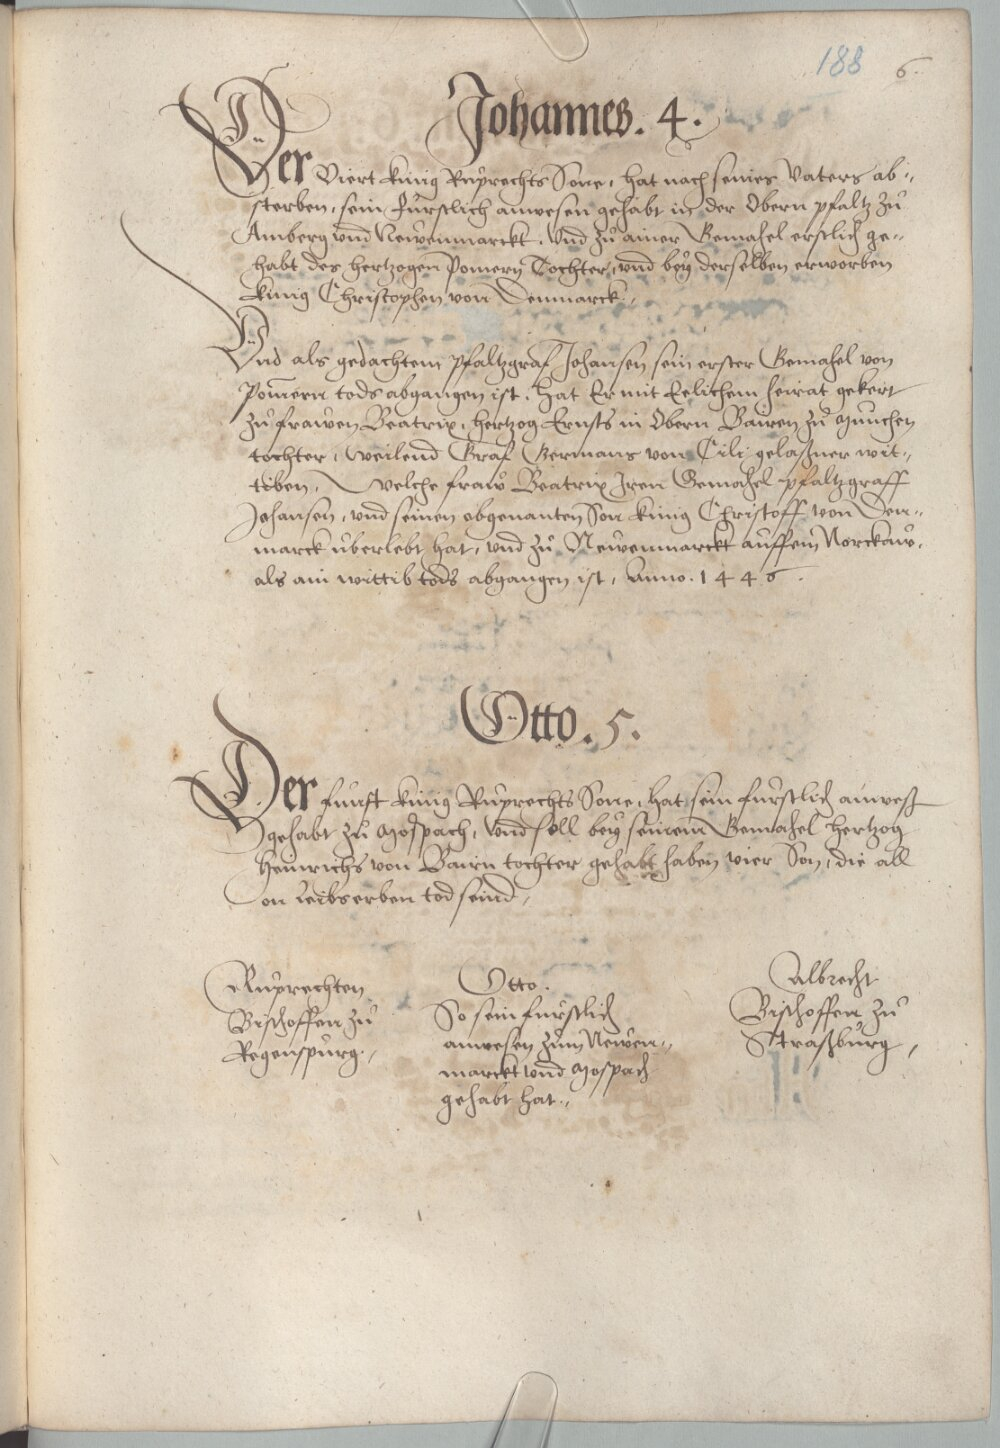 188 6.
Johannes. 4.
Der Viert kunig Ruprechts Sone, hat nach seines Vaters ab-
sterben, sein Furstlich anwesen gehabt in der Obern pfaltz zu
Amberg und Newenmarckt. Und zu ainer Gemahel erstlich ge-
habt des hertzogen Pomern Tochter, und bey derselben erworben
kunig Christophen von Denmarck.
Und als gedachtem pfaltzgraf Johansen sein erster Gemahel von
Pomern tods abgangen ist, hat Er mit Eelichem heirat gekert
zu frawen Beatrix, hertzog Ernsts in Obern Bairen zu Munchen
tochter, weilend Graf Hermans von Cili gelaßner wit-
tiben, welche fraw Beatrix Iren Gemahel pfaltzgraff
Johansen, und seinen obgenanten Son kunig Christoff von Den-
marck uberlebt hat, und zu Newenmarckt auffem Norckaw,
als ain wittib tods abgangen ist, Anno. 1446.
Otto. 5.
Der funft kunig Ruprechts Sone, hat sein furstlich anweß
gehabt zu Mospach, und soll bey seinem Gemahel hertzog
Heinrichs von Bairn tochter gehabt haben vier Son, die all
on leibserben tod seind,
Ruprechten
Bischoffen zu
Regenspurg.
Otto.
So sein furstlich
anwesen zum Newen-
marckt und Mospach
gehabt hat.
Albrecht
Bischoffen zu
Straßburg,